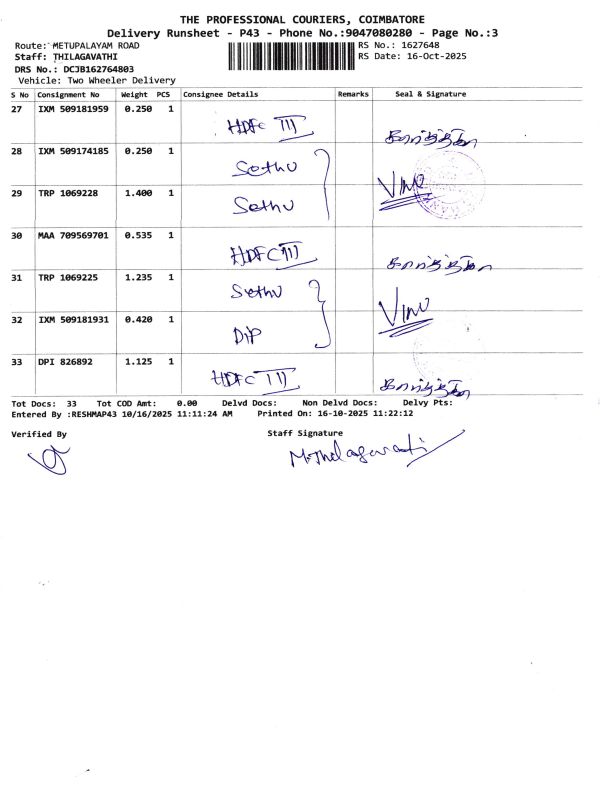 THE PROFESSIONAL COURIERS, COIMBATORE
Delivery Runsheet - P43 - Phone No.:9047080280 - Page No.:3
Route: METUPALAYAM ROAD RS No.: 1627648
Staff: THILAGAVATHI RS Date: 16-Oct-2025
DRS No.: DCJB162764803
Vehicle: Two Wheeler Delivery
S No Consignment No Weight PCS Consignee Details Remarks Seal & Signature
27 IXM 509181959 0.250 1
HDFC III கார்த்திகா
28 IXM 509174185 0.250 1
Sethu
29 TRP 1069228 1.400 1 Vinu
Sethu
30 MAA 709569701 0.535 1
HDFC III கார்த்திகா
31 TRP 1069225 1.235 1
Sethu Vinu
32 IXM 509181931 0.420 1
DIP
33 DPI 826892 1.125 1
HDFC III கார்த்திகா
Tot Docs: 33 Tot COD Amt: 0.00 Delvd Docs: Non Delvd Docs: Delvy Pts:
Entered By :RESHMAP43 10/16/2025 11:11:24 AM Printed On: 16-10-2025 11:22:12
Verified By Staff Signature
M.Thilagavathi